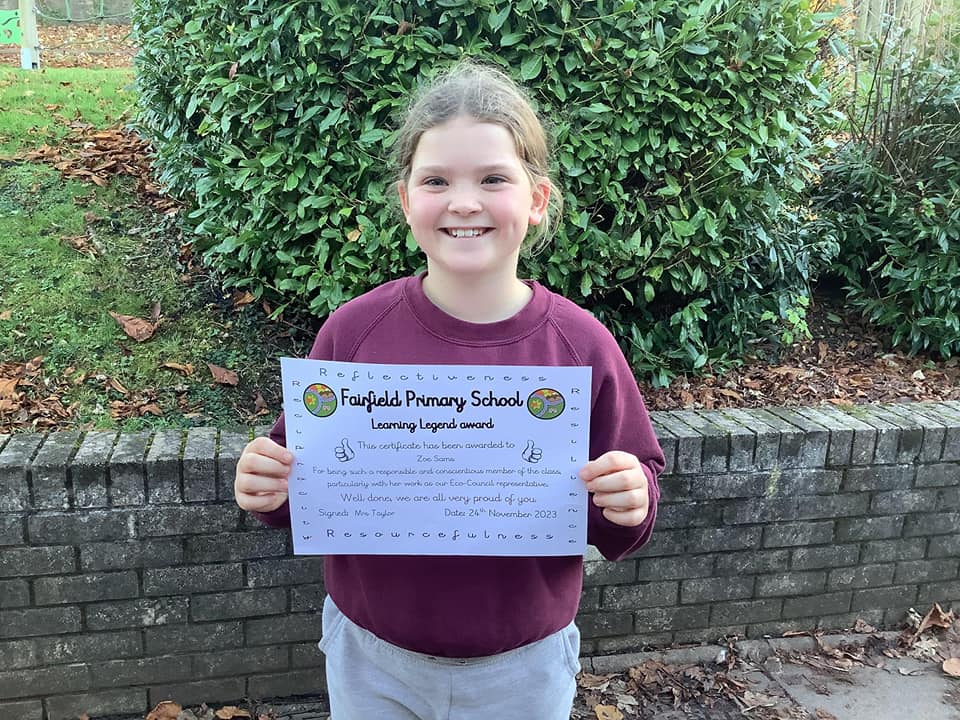 Reflectiveness
Fairfield Primary School
Learning Legend award
This certificate has been awarded to
Zoe Sams
For being such a responsible and conscientious member of the class,
particularly with her work as our Eco-Council representative.
Well done, we are all very proud of you
Signed: Mrs Taylor Date: 24th November 2023
Reciprocity
Resilience
Resourcefulness